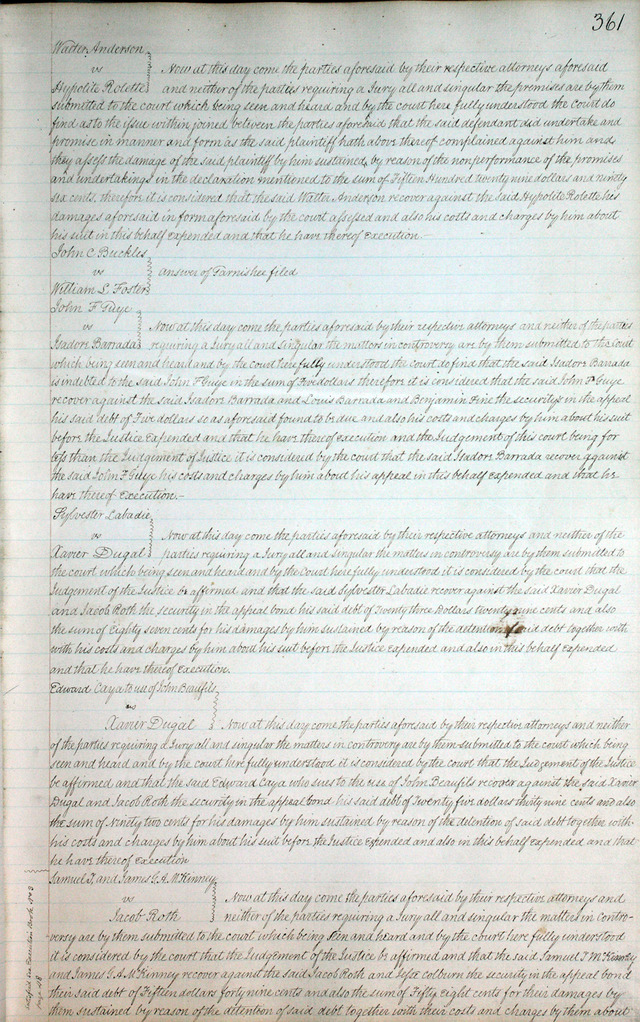 361
Walter Anderson
vs Now at this day come the parties aforesaid by their respective attorneys aforesaid
Hypolite Rolette and neither of the parties requiring a Jury all and singular the premises are by them
submitted to the court which being seen and heard and by the court here fully understood the court do
find as to the issue within joined between the parties aforesaid that the said defendant did undertake and
promise in manner and form as the said plaintiff hath above thereof complained against him and
they assess the damage of the said plaintiff by him sustained by reason of the nonperformance of the promises
and undertakings in the declaration mentioned to the sum of Fifteen Hundred twenty nine dollars and ninety
six cents, therefore it is considered that the said Walter Anderson recover against the said Hypolite Rolette his
damages aforesaid in form aforesaid by the court assessed and also his costs and charges by him about
his suit in this behalf expended and that he have thereof execution.—
John C Buckles
vs Answer of Garnishee filed
William S. Foster
John F Guye
vs Now at this day come the parties aforesaid by their respective attorneys and neither of the parties
Isadore Barrada requiring a Jury all and singular the matters in controversy are by them submitted to the court
which being seen and heard and by the court here fully understood the court do find that the said Isadore Barrada
is indebted to the said John F Guye in the sum of Five dollars therefore it is considered that the said John F Guye
recover against the said Isadore Barrada and Louis Barrada and Benjamin Fine the securitys in the appeal
his said debt of Five dollars so as aforesaid found to be due and also his costs and charges by him about his suit
before the Justice expended and that he have thereof execution and the Judgement of this court being for
less than the Judgement of Justice it is considered by the court that the said Isadore Barrada recover against
the said John F Guye his costs and charges by him about his appeal in this behalf expended and that he
have thereof execution.—
Sylvester Labadie
vs Now at this day come the parties aforesaid by their respective attorneys and neither of the
Xavier Dugal parties requiring a Jury all and singular the matters in controversy are by them submitted to
the court which being seen and heard and by the court here fully understood it is considered by the court that the
Judgement of the Justice be affirmed and that the said Sylvester Labadie recover against the said Xavier Dugal
and Jacob Roth the security in the appeal bond his said debt of Twenty three Dollars twenty nine cents and also
the sum of eighty seven cents for his damages by him sustained by reason of the detention of said debt together with
with his costs and charges by him about his suit before the Justice expended and also in this behalf expended
and that he have thereof execution.
Edward Caya to use of John Beaufils
vs
Xavier Dugal Now at this day come the parties aforesaid by their respective attorneys and neither
of the parties requiring a Jury all and singular the matters in controversy are by them submitted to the court which being
seen and heard and by the court here fully understood it is considered by the court that the Judgement of the Justice
be affirmed and that the said Edward Caya who sues to the use of John Beaufils recover against the said Xavier
Dugal and Jacob Roth the security in the appeal bond his said debt of Twenty five dollars thirty nine cents and also
the sum of Ninety two cents for his damages by him sustained by reason of the detention of said debt together with
his costs and charges by him about his suit before the Justice expended and also in this behalf expended and that
he have thereof execution
Samuel T. and James G. A. McKinney
vs Now at this day come the parties aforesaid by their respective attorneys and
Jacob Roth neither of the parties requiring a Jury all and singular the matters in contro-
versy are by them submitted to the court which being seen and heard and by the court here fully understood
it is considered by the court that the Judgement of the Justice be affirmed and that the said Samuel T McKinney
and James G. A. McKinney recover against the said Jacob Roth and Jesse Colburn the security in the appeal bond
their said debt of Fifteen dollars forty nine cents and also the sum of Fifty eight cents for their damages by
them sustained by reason of the detention of said debt together with their costs and charges by them about
Satisfied see Execution Book
page